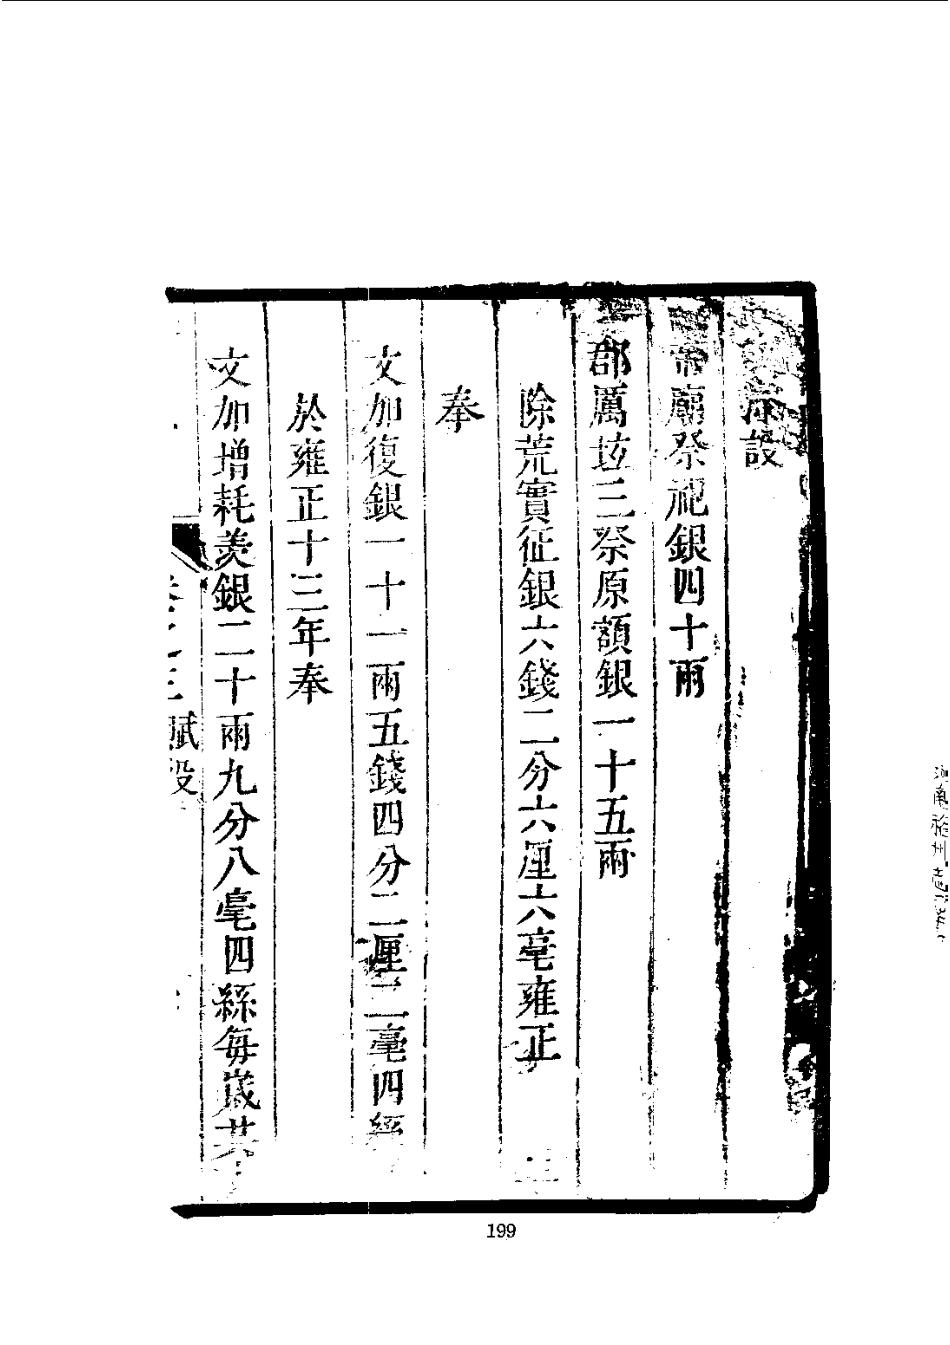 設
帝廟祭祀銀四十兩
郡厲坛三祭原額銀一十五兩
除荒實征銀六錢二分六厘六毫雍正
奉
文加復銀一十一兩五錢四分二厘三毫四絲
於雍正十三年奉
文加增耗羨銀二十兩九分八毫四絲每歲共
卷之三
賦役
199